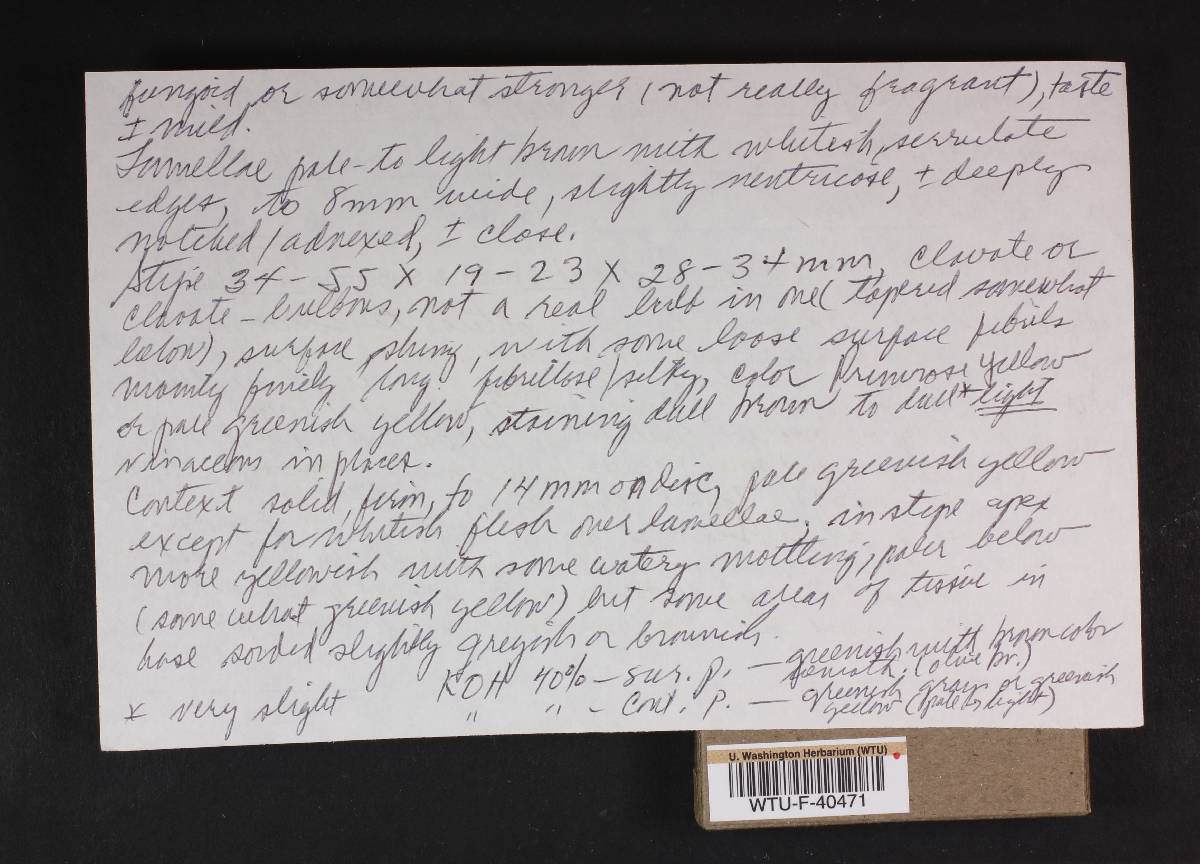 fungoid or somewhat stronger (not really fragrant), taste
± mild.
Lamellae pale- to light brown with whitish, serrulate
edges, to 8mm wide, slightly ventricose, ± deeply
notched/adnexed, ± close.
Stipe 34-55 x 19-23 x 28-34mm, clavate or
clavate-bulbous, not a real bulb in one (tapered somewhat
below), surface shiny, with some loose surface fibrils
mainly finely long. fibrillose/silky, color Primrose Yellow
or pale greenish yellow, staining dull brown to dull* light
vinaceous in places.
Context solid, firm, to 14mm on disc, pale greenish yellow
except for whitish flesh over lamellae, in stipe apex
more yellowish with some watery mottling, paler below
(somewhat greenish yellow) but some areas of tissue in
base sordid slightly greyish or brownish.
KOH 40% - sur. p. - greenish with brown color
beneath. (olive br.)
* very slight
" " - cont. p. - greenish gray or greenish
yellow (pale to light)
U. Washington Herbarium (WTU)
WTU-F-40471